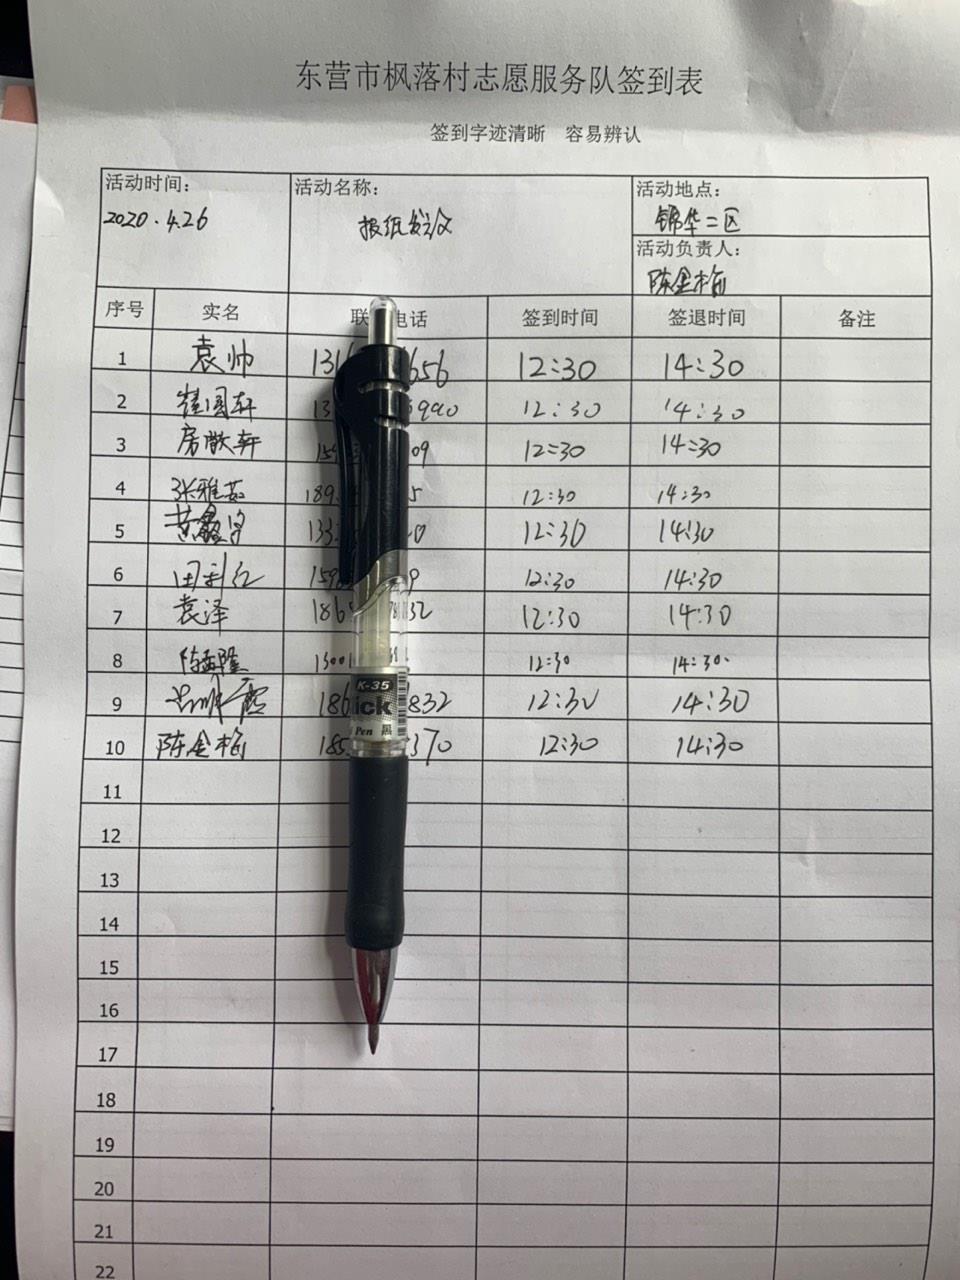 东营市枫落村志愿服务队签到表
签到字迹清晰 容易辨认
活动时间: 活动名称: 活动地点:
2020.4.26 报纸发放 锦华二区
活动负责人:
陈金梅
序号 实名 联 电话 签到时间 签退时间 备注
1 袁帅 131 656 12:30 14:30
2 崔国轩 13 990 12:30 14:30
3 房 轩 159 09 12:30 14:30
4 张雅茹 189 5 12:30 14:30
5 黄鑫 133 0 12:30 14:30
6 田利红 159 9 12:30 14:30
7 袁泽 186 32 12:30 14:30
8 1300 12:30 14:30
9 186 832 12:30 14:30
10 陈金梅 185 370 12:30 14:30
K-35
ick
Pen 黑
11
12
13
14
15
16
17
18
19
20
21
22